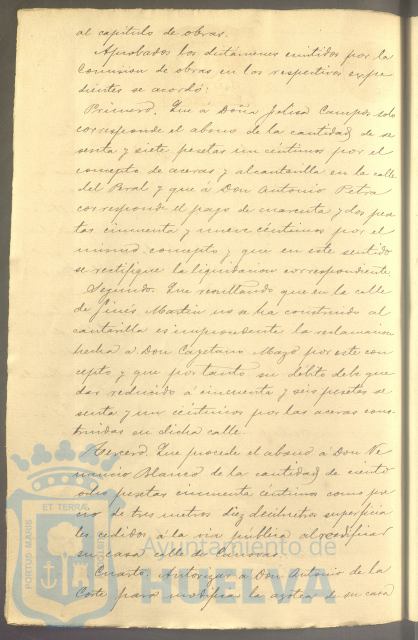 al capitulo de obras.
Aprobados los dictámenes emitidos por la
Comision de obras en los respectivos expe
dientes se acordó:
Primero. Que á Doña Josefa Campos solo
corresponde el abono de la cantidad de se
senta y siete pesetas un céntimos por el
concepto de aceras y alcantarilla en la calle
del Bral y que á Don Antonio Petra
corresponde el pago de cuarenta y dos pese
tas cincuenta y nueve céntimos por el
mismo concepto, y que en este sentido
se rectifique la liquidacion correspondiente.
Segundo. Que resultando que en la calle
de Ginés Martin no se ha construido al
cantarilla es improcedente la reclamacion
hecha á Don Cayetano Mayo por este con
cepto y que por tanto su débito debe que
dar reducido á cincuenta y seis pesetas se
senta y un céntimos por las aceras cons
truidas en dicha calle.
Tercero. Que procede el abono á Don Ve
nancio Blanco de la cantidad de ciento
ocho pesetas cincuenta céntimos como pre
cio de tres metros diez decímetros superficia
les cedidos á la via pública al reedificar
su casa calle de
Cuarto. Autorizar á Don Antonio de la
Corte para modificar la azotea de su casa
PORTUS MARIS ET TERRAE
Ayuntamiento de
HUELVA